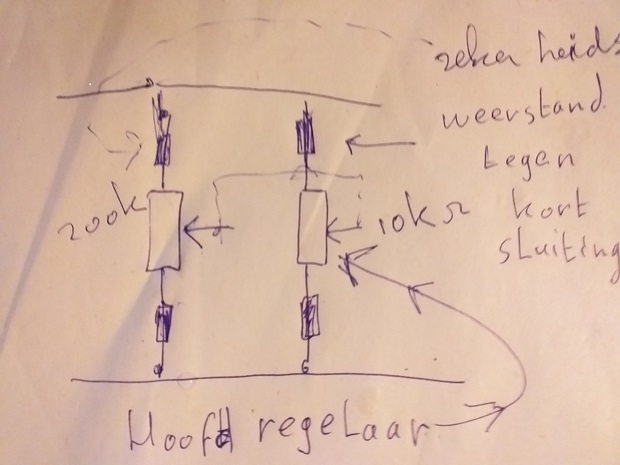 zekerheids
weerstand
tegen
kort
sluiting
200k
10kΩ
Hoofd regelaar